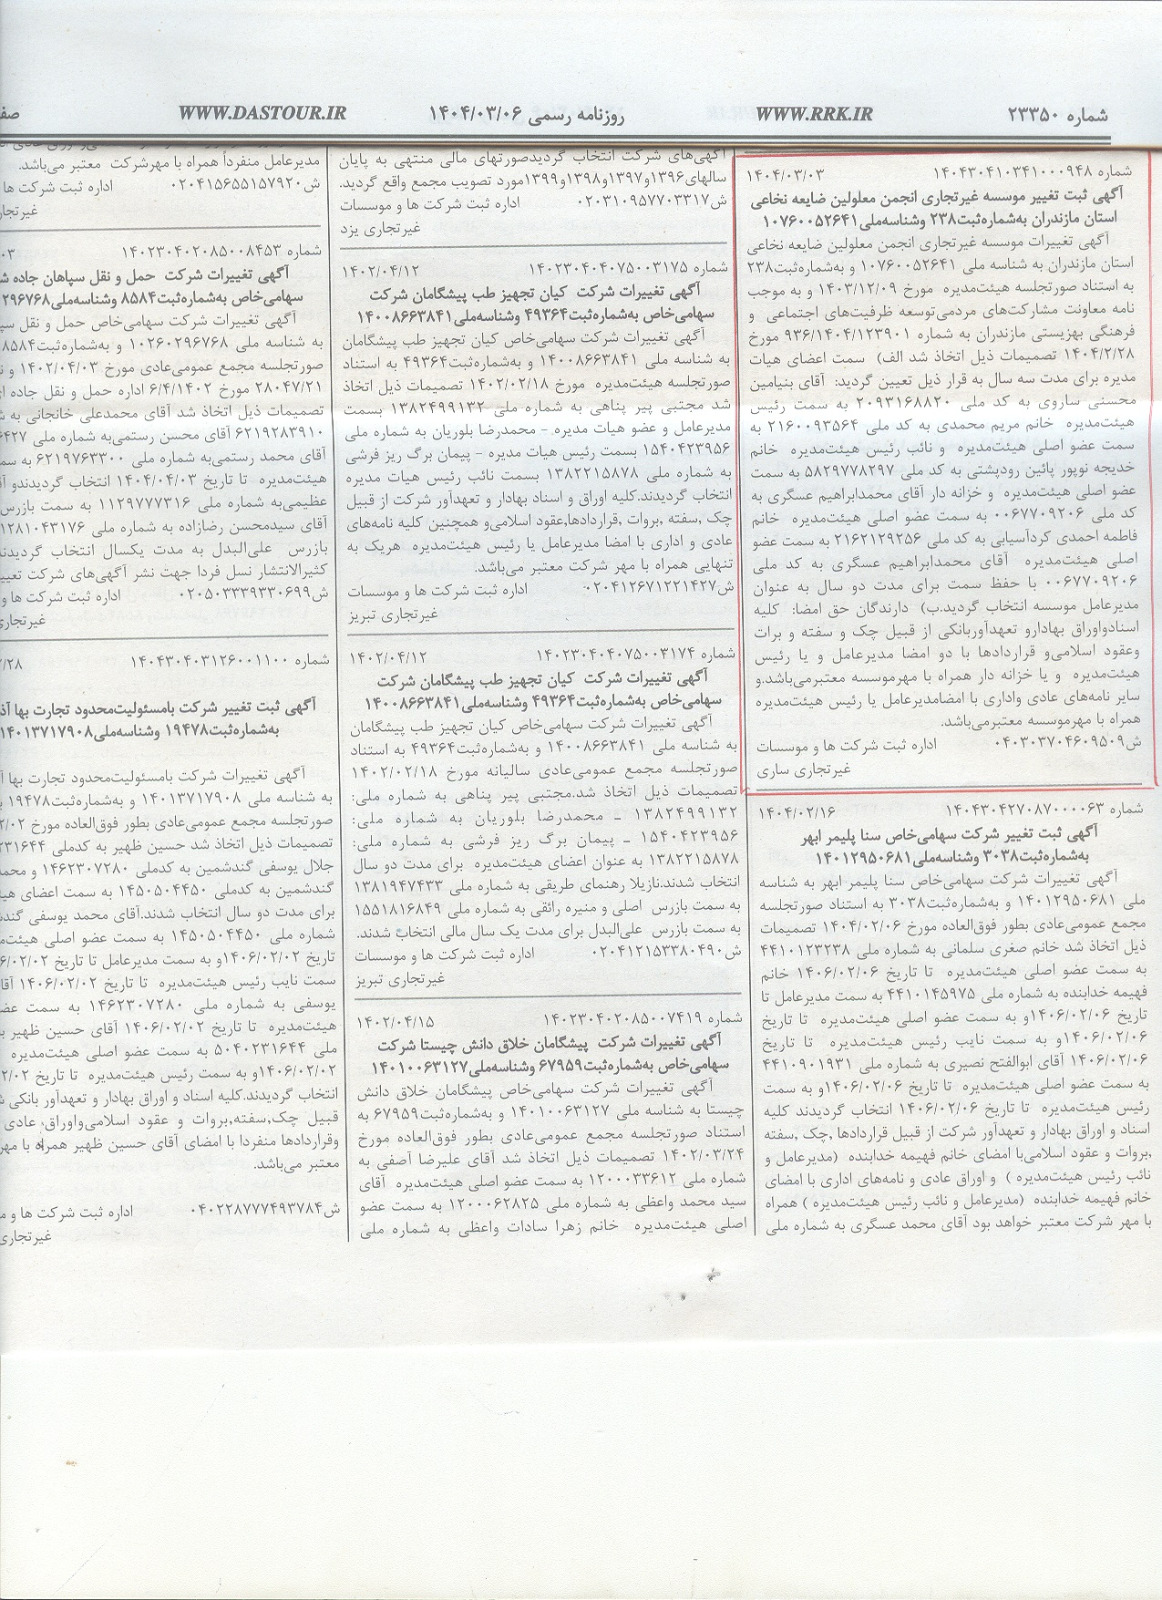 شماره ۲۳۳۵۰
WWW.RRK.IR
روزنامه رسمی ۱۴۰۴/۰۳/۰۶
WWW.DASTOUR.IR
شماره ۱۴۰۴۳۰۴۱۰۳۴۱۰۰۰۹۴۸
۱۴۰۴/۰۳/۰۳
آگهی ثبت تغییر موسسه غیرتجاری انجمن معلولین ضایعه نخاعی
استان مازندران به‌شماره‌ثبت۲۳۸ وشناسه‌ملی۱۰۷۶۰۰۵۲۶۴۱
آگهی تغییرات موسسه غیرتجاری انجمن معلولین ضایعه نخاعی
استان مازندران به شناسه ملی ۱۰۷۶۰۰۵۲۶۴۱ و به‌شماره‌ثبت۲۳۸
به استناد صورتجلسه هیئت‌مدیره مورخ ۱۴۰۳/۱۲/۰۹ و به موجب
نامه معاونت مشارکت‌های مردمی‌توسعه ظرفیت‌های اجتماعی و
فرهنگی بهزیستی مازندران به شماره ۹۳۶/۱۴۰۴/۱۲۳۹۰۱ مورخ
۱۴۰۴/۲/۲۸ تصمیمات ذیل اتخاذ شد الف) سمت اعضای هیات
مدیره برای مدت سه سال به قرار ذیل تعیین گردید: آقای بنیامین
محسنی ساروی به کد ملی ۲۰۹۳۱۶۸۸۲۰ به سمت رئیس
هیئت‌مدیره خانم مریم محمدی به کد ملی ۲۱۶۰۰۹۳۵۶۴ به
سمت عضو اصلی هیئت‌مدیره و نائب رئیس هیئت‌مدیره خانم
خدیجه نوپور پائین رودپشتی به کد ملی ۵۸۲۹۷۷۸۲۹۷ به سمت
عضو اصلی هیئت‌مدیره و خزانه دار آقای محمدابراهیم عسگری به
کد ملی ۰۰۶۷۷۰۹۲۰۶ به سمت عضو اصلی هیئت‌مدیره خانم
فاطمه احمدی گردآسیابی به کد ملی ۲۱۶۲۱۲۹۲۵۶ به سمت عضو
اصلی هیئت‌مدیره آقای محمدابراهیم عسگری به کد ملی
۰۰۶۷۷۰۹۲۰۶ با حفظ سمت برای مدت دو سال به عنوان
مدیرعامل موسسه انتخاب گردید.ب) دارندگان حق امضا: کلیه
اسنادواوراق بهادارو تعهدآوربانکی از قبیل چک و سفته و برات
وعقود اسلامی‌و قراردادها با دو امضا مدیرعامل و یا رئیس
هیئت‌مدیره و یا خزانه دار همراه با مهرموسسه معتبرمی‌باشد.و
سایر نامه‌های عادی واداری با امضامدیرعامل یا رئیس هیئت‌مدیره
همراه با مهرموسسه معتبرمی‌باشد.
ش۰۴۰۳۰۳۷۰۴۶۰۹۵۰۹ اداره ثبت شرکت ها و موسسات
غیرتجاری ساری
شماره ۱۴۰۴۳۰۴۲۷۰۸۷۰۰۰۰۶۳
۱۴۰۴/۰۲/۱۶
آگهی ثبت تغییر شرکت سهامی‌خاص سنا پلیمر ابهر
به‌شماره‌ثبت۳۰۳۸ وشناسه‌ملی۱۴۰۱۲۹۵۰۶۸۱
آگهی تغییرات شرکت سهامی‌خاص سنا پلیمر ابهر به شناسه
ملی ۱۴۰۱۲۹۵۰۶۸۱ و به‌شماره‌ثبت۳۰۳۸ به استناد صورتجلسه
مجمع عمومی‌عادی بطور فوق‌العاده مورخ ۱۴۰۴/۰۲/۰۶ تصمیمات
ذیل اتخاذ شد خانم صغری سلمانی به شماره ملی ۴۴۱۰۱۲۳۲۳۸
به سمت عضو اصلی هیئت‌مدیره تا تاریخ ۱۴۰۶/۰۲/۰۶ خانم
فهیمه خدابنده به شماره ملی ۴۴۱۰۱۴۵۹۷۵ به سمت مدیرعامل تا
تاریخ ۱۴۰۶/۰۲/۰۶و به سمت عضو اصلی هیئت‌مدیره تا تاریخ
۱۴۰۶/۰۲/۰۶و به سمت نایب رئیس هیئت‌مدیره تا تاریخ
۱۴۰۶/۰۲/۰۶ آقای ابوالفتح نصیری به شماره ملی ۴۴۱۰۹۰۱۹۳۱
به سمت عضو اصلی هیئت‌مدیره تا تاریخ ۱۴۰۶/۰۲/۰۶و به سمت
رئیس هیئت‌مدیره تا تاریخ ۱۴۰۶/۰۲/۰۶ انتخاب گردیدند کلیه
اسناد و اوراق بهادار و تعهدآور شرکت از قبیل قراردادها ,چک ,سفته
,بروات و عقود اسلامی‌با امضای خانم فهیمه خدابنده (مدیرعامل و
نائب رئیس هیئت‌مدیره ) و اوراق عادی و نامه‌های اداری با امضای
خانم فهیمه خدابنده (مدیرعامل و نائب رئیس هیئت‌مدیره ) همراه
با مهر شرکت معتبر خواهد بود آقای محمد عسگری به شماره ملی
آگهی‌های شرکت انتخاب گردیدصورتهای مالی منتهی به پایان
سالهای۱۳۹۶و۱۳۹۷و۱۳۹۸و۱۳۹۹مورد تصویب مجمع واقع گردید.
ش۰۲۰۳۱۰۹۵۷۷۰۳۳۱۷ اداره ثبت شرکت ها و موسسات
غیرتجاری یزد
شماره ۱۴۰۲۳۰۴۰۴۰۷۵۰۰۳۱۷۵
۱۴۰۲/۰۴/۱۲
آگهی تغییرات شرکت کیان تجهیز طب پیشگامان شرکت
سهامی‌خاص به‌شماره‌ثبت۴۹۳۶۴ وشناسه‌ملی۱۴۰۰۸۶۶۳۸۴۱
آگهی تغییرات شرکت سهامی‌خاص کیان تجهیز طب پیشگامان
به شناسه ملی ۱۴۰۰۸۶۶۳۸۴۱ و به‌شماره‌ثبت۴۹۳۶۴ به استناد
صورتجلسه هیئت‌مدیره مورخ ۱۴۰۲/۰۲/۱۸ تصمیمات ذیل اتخاذ
شد مجتبی پیر پناهی به شماره ملی ۱۳۸۲۴۹۹۱۳۲ بسمت
مدیرعامل و عضو هیات مدیره - محمدرضا بلوریان به شماره ملی
۱۵۴۰۴۲۳۹۵۶ بسمت رئیس هیات مدیره - پیمان برگ ریز فرشی
به شماره ملی ۱۳۸۲۲۱۵۸۷۸ بسمت نائب رئیس هیات مدیره
انتخاب گردیدند.کلیه اوراق و اسناد بهادار و تعهدآور شرکت از قبیل
چک ,سفته ,بروات ,قراردادها,عقود اسلامی‌و همچنین کلیه نامه‌های
عادی و اداری با امضا مدیرعامل یا رئیس هیئت‌مدیره هریک به
تنهایی همراه با مهر شرکت معتبر می‌باشد.
ش۰۲۰۴۱۲۶۷۱۲۲۱۴۲۷ اداره ثبت شرکت ها و موسسات
غیرتجاری تبریز
شماره ۱۴۰۲۳۰۴۰۴۰۷۵۰۰۳۱۷۴
۱۴۰۲/۰۴/۱۲
آگهی تغییرات شرکت کیان تجهیز طب پیشگامان شرکت
سهامی‌خاص به‌شماره‌ثبت۴۹۳۶۴ وشناسه‌ملی۱۴۰۰۸۶۶۳۸۴۱
آگهی تغییرات شرکت سهامی‌خاص کیان تجهیز طب پیشگامان
به شناسه ملی ۱۴۰۰۸۶۶۳۸۴۱ و به‌شماره‌ثبت۴۹۳۶۴ به استناد
صورتجلسه مجمع عمومی‌عادی سالیانه مورخ ۱۴۰۲/۰۲/۱۸
تصمیمات ذیل اتخاذ شد.مجتبی پیر پناهی به شماره ملی:
۱۳۸۲۴۹۹۱۳۲ ـ محمدرضا بلوریان به شماره ملی:
۱۵۴۰۴۲۳۹۵۶ ـ پیمان برگ ریز فرشی به شماره ملی:
۱۳۸۲۲۱۵۸۷۸ به عنوان اعضای هیئت‌مدیره برای مدت دو سال
انتخاب شدند.نازیلا رهنمای طریقی به شماره ملی ۱۳۸۱۹۴۷۴۳۳
به سمت بازرس اصلی و منیره رائقی به شماره ملی ۱۵۵۱۸۱۶۸۴۹
به سمت بازرس علی‌البدل برای مدت یک سال مالی انتخاب شدند.
ش۰۲۰۴۱۲۱۵۳۳۸۰۴۹۰ اداره ثبت شرکت ها و موسسات
غیرتجاری تبریز
شماره ۱۴۰۲۳۰۴۰۲۰۸۵۰۰۷۴۱۹
۱۴۰۲/۰۴/۱۵
آگهی تغییرات شرکت پیشگامان خلاق دانش چیستا شرکت
سهامی‌خاص به‌شماره‌ثبت۶۷۹۵۹ وشناسه‌ملی۱۴۰۱۰۰۶۳۱۲۷
آگهی تغییرات شرکت سهامی‌خاص پیشگامان خلاق دانش
چیستا به شناسه ملی ۱۴۰۱۰۰۶۳۱۲۷ و به‌شماره‌ثبت۶۷۹۵۹ به
استناد صورتجلسه مجمع عمومی‌عادی بطور فوق‌العاده مورخ
۱۴۰۲/۰۳/۲۴ تصمیمات ذیل اتخاذ شد آقای علیرضا آصفی به
شماره ملی ۱۲۰۰۰۳۳۶۱۲ به سمت عضو اصلی هیئت‌مدیره آقای
سید محمد واعظی به شماره ملی ۱۲۰۰۰۶۲۸۲۵ به سمت عضو
اصلی هیئت‌مدیره خانم زهرا سادات واعظی به شماره ملی
مدیرعامل منفرداً همراه با مهرشرکت معتبر می‌باشد.
ش۰۲۰۴۱۵۶۵۵۱۵۷۹۲۰ اداره ثبت شرکت ها
غیرتجار
شماره ۱۴۰۲۳۰۴۰۲۰۸۵۰۰۸۴۵۳
آگهی تغییرات شرکت حمل و نقل سپاهان جاده
سهامی‌خاص به‌شماره‌ثبت۸۵۸۴ وشناسه‌ملی
آگهی تغییرات شرکت سهامی‌خاص حمل و نقل
به شناسه ملی ۱۰۲۶۰۲۹۶۷۶۸ و به‌شماره‌ثبت۸۵۸۴
صورتجلسه مجمع عمومی‌عادی مورخ ۱۴۰۲/۰۴/۰۳ و
۲۸۰۴۷/۲۱ مورخ ۶/۴/۱۴۰۲ اداره حمل و نقل جاده
تصمیمات ذیل اتخاذ شد آقای محمدعلی خانجانی به
۶۲۱۹۲۸۳۹۱۰ آقای محسن رستمی‌به شماره ملی
آقای محمد رستمی‌به شماره ملی ۶۲۱۹۷۶۳۳۰۰ به
هیئت‌مدیره تا تاریخ ۱۴۰۴/۰۴/۰۳ انتخاب گردیدندو
عظیمی‌به شماره ملی ۱۱۲۹۷۷۷۳۱۶ به سمت بازرس
آقای سیدمحسن رضازاده به شماره ملی ۱۲۸۱۰۴۳۱۷۶
بازرس علی‌البدل به مدت یکسال انتخاب گردیدند
کثیرالانتشار نسل فردا جهت نشر آگهی‌های شرکت
ش۰۲۰۵۰۳۳۳۹۳۳۰۶۹۹ اداره ثبت شرکت ها و
غیرتجاری
شماره ۱۴۰۴۳۰۴۰۳۱۲۶۰۰۱۱۰۰
آگهی ثبت تغییر شرکت بامسئولیت‌محدود تجارت بها
به‌شماره‌ثبت۱۹۴۷۸ وشناسه‌ملی۱۴۰۱۳۷۱۷۹۰۸
آگهی تغییرات شرکت بامسئولیت‌محدود تجارت بها
به شناسه ملی ۱۴۰۱۳۷۱۷۹۰۸ و به‌شماره‌ثبت
صورتجلسه مجمع عمومی‌عادی بطور فوق‌العاده مورخ
تصمیمات ذیل اتخاذ شد حسین ظهیر به کدملی
جلال یوسفی گندشمین به کدملی ۱۴۶۲۳۰۷۲۸۰ و
گندشمین به کدملی ۱۴۵۰۵۰۴۴۵۰ به سمت اعضای
برای مدت دو سال انتخاب شدند.آقای محمد یوسفی
شماره ملی ۱۴۵۰۵۰۴۴۵۰ به سمت عضو اصلی
تاریخ ۱۴۰۶/۰۲/۰۲و به سمت مدیرعامل تا تاریخ
سمت نایب رئیس هیئت‌مدیره تا تاریخ ۱۴۰۶/۰۲/۰۲
یوسفی به شماره ملی ۱۴۶۲۳۰۷۲۸۰ به سمت
هیئت‌مدیره تا تاریخ ۱۴۰۶/۰۲/۰۲ آقای حسین ظهیر
ملی ۵۰۴۰۲۳۱۶۴۴ به سمت عضو اصلی هیئت‌مدیره
۱۴۰۶/۰۲/۰۲و به سمت رئیس هیئت‌مدیره تا تاریخ
انتخاب گردیدند.کلیه اسناد و اوراق بهادار و تعهدآور بانکی
قبیل چک,سفته,بروات و عقود اسلامی‌واوراق عادی
وقراردادها منفردا با امضای آقای حسین ظهیر همراه با
معتبر می‌باشد.
ش۰۴۰۲۲۸۷۷۷۴۹۳۷۸۴ اداره ثبت شرکت ها و
غیرتجاری